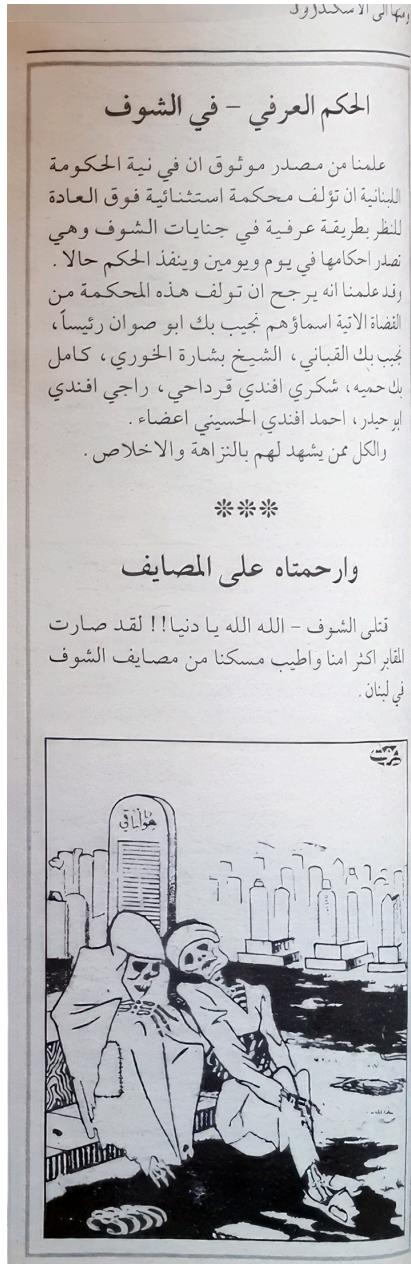 ومنها الى الاسكندرون
الحكم العرفي – في الشوف
علمنا من مصدر موثوق ان في نية الحكومة
اللبنانية ان تؤلف محكمة استثنائية فوق العادة
للنظر بطريقة عرفية في جنايات الشوف وهي
تصدر احكامها في يوم ويومين وينفذ الحكم حالا .
وقد علمنا انه يرجح ان تولف هذه المحكمة من
القضاة الاتية اسماؤهم نجيب بك ابو صوان رئيساً،
نجيب بك القباني، الشيخ بشارة الخوري، كامل
بك حميه، شكري افندي قرداحي، راجي افندي
ابو حيدر، احمد افندي الحسيني اعضاء .
والكل ممن يشهد لهم بالنزاهة والاخلاص .
***
وارحمتاه على المصايف
قتلى الشوف – الله الله يا دنيا!! لقد صارت
المقابر اكثر امنا واطيب مسكنا من مصايف الشوف
في لبنان .
هو الباقي